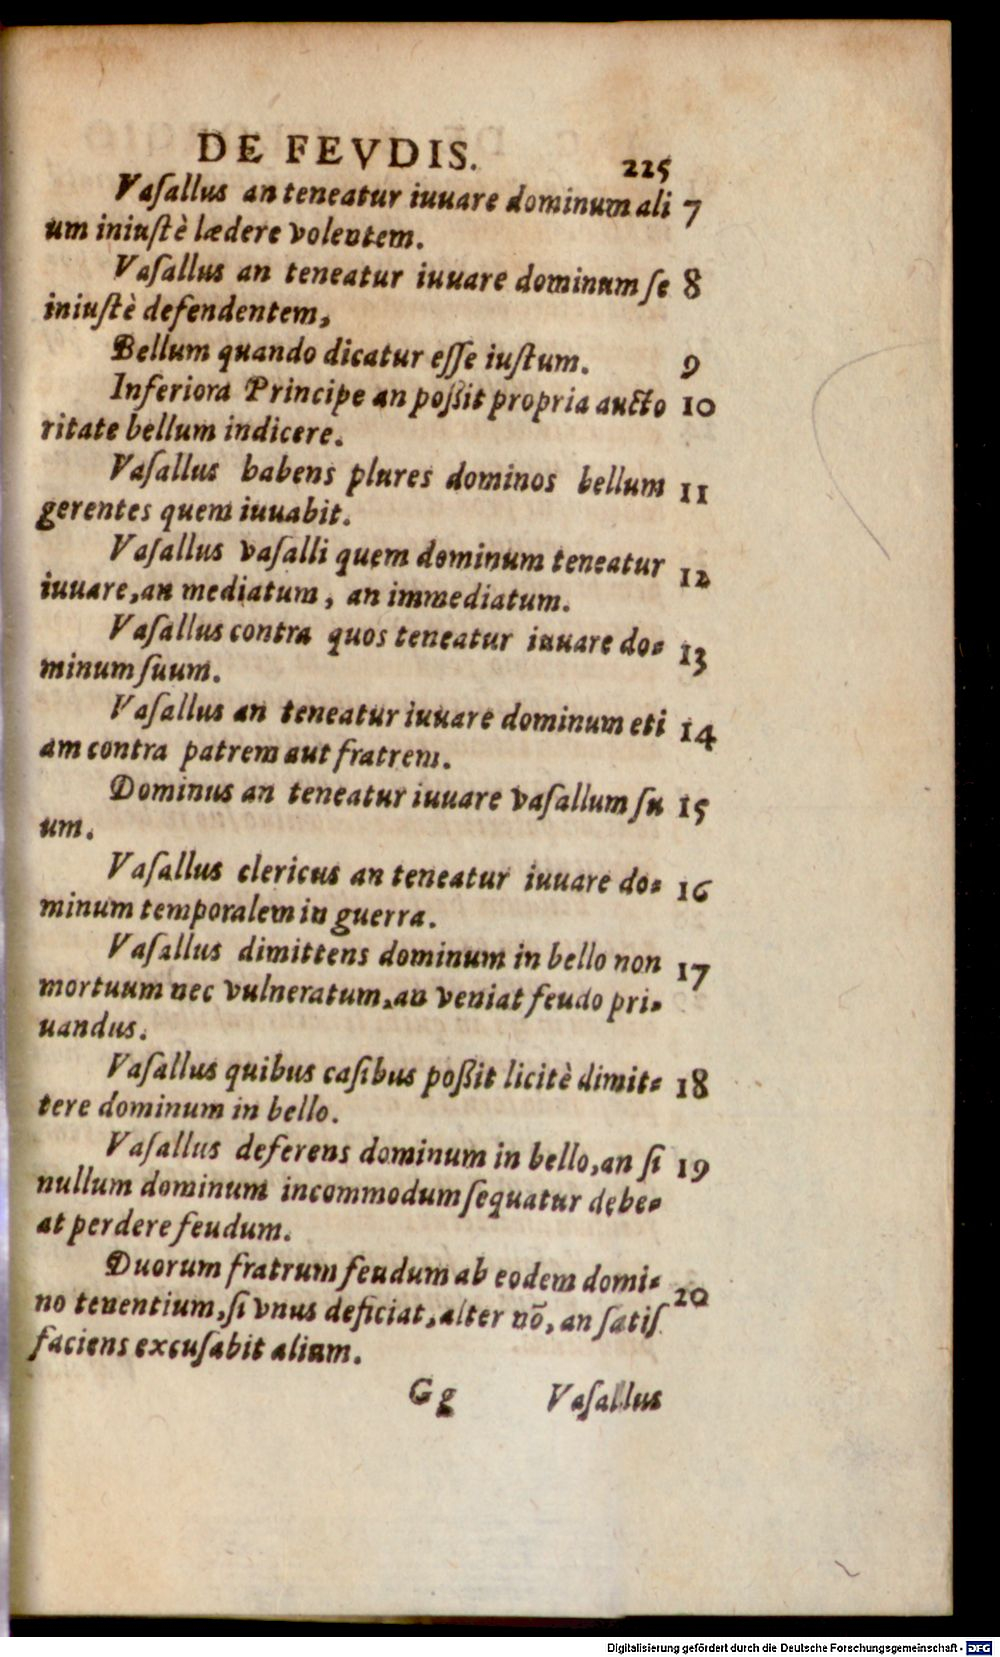 DE FEVDIS. 225
Vaſallus an teneatur iuuare dominum ali 7
um iniuſtè lædere volentem.
Vaſallus an teneatur iuuare dominum ſe 8
iniuſtè defendentem,
Bellum quando dicatur eſſe iuſtum. 9
Inferiora Principe an poßit propria aucto 10
ritate bellum indicere.
Vaſallus habens plures dominos bellum 11
gerentes quem iuuabit.
Vaſallus vaſalli quem dominum teneatur 12
iuuare, an mediatum, an immediatum.
Vaſallus contra quos teneatur iuuare do⸗ 13
minum ſuum.
Vaſallus an teneatur iuuare dominum eti 14
am contra patrem aut fratrem.
Dominus an teneatur iuuare vaſallum ſu 15
um.
Vaſallus clericus an teneatur iuuare do⸗ 16
minum temporalem in guerra.
Vaſallus dimittens dominum in bello non 17
mortuum nec vulneratum, an veniat feudo pri⸗
uandus.
Vaſallus quibus caſibus poßit licitè dimit⸗ 18
tere dominum in bello.
Vaſallus deferens dominum in bello, an ſi 19
nullum dominum incommodum ſequatur debe⸗
at perdere feudum.
Duorum fratrum feudum ab eodem domi⸗ 20
no tenentium, ſi vnus deficiat, alter nō, an ſatiſ
faciens excuſabit alium.
Gg Vaſallus
Digitalisierung gefördert durch die Deutsche Forschungsgemeinschaft - DFG